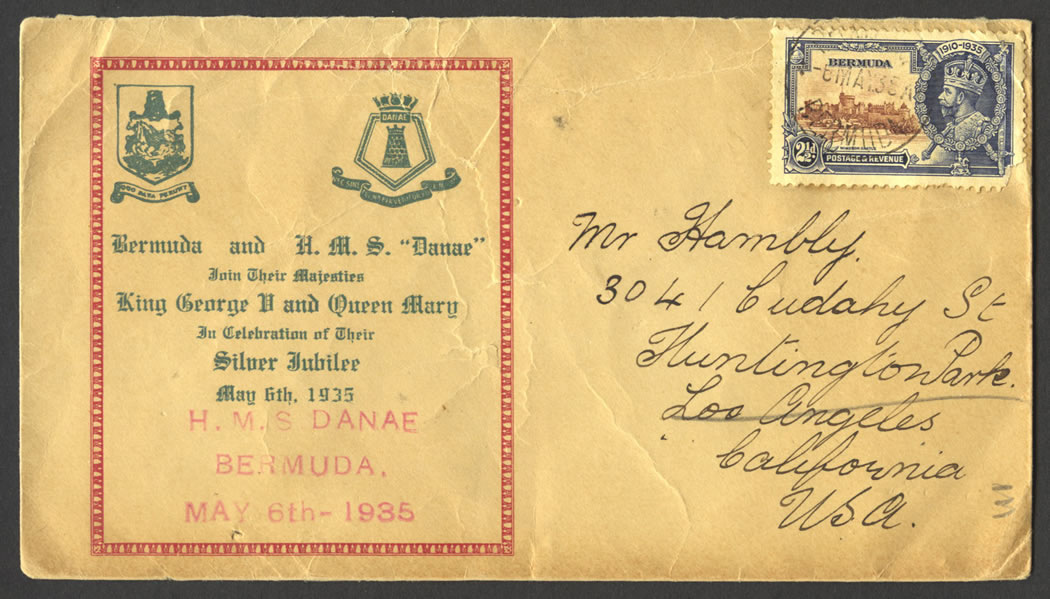 QUO FATA FERUNT
DANAE
Bermuda and H. M. S. "Danae"
Join Their Majesties
King George V and Queen Mary
In Celebration of Their
Silver Jubilee
May 6th, 1935
H. M. S DANAE
BERMUDA.
MAY 6th - 1935
1910-1935
BERMUDA
-6 MAY 35
2½d
POSTAGE & REVENUE
Mr Hambly.
3041 Cudahy St
Huntington Park.
Los Angeles
California
USA.